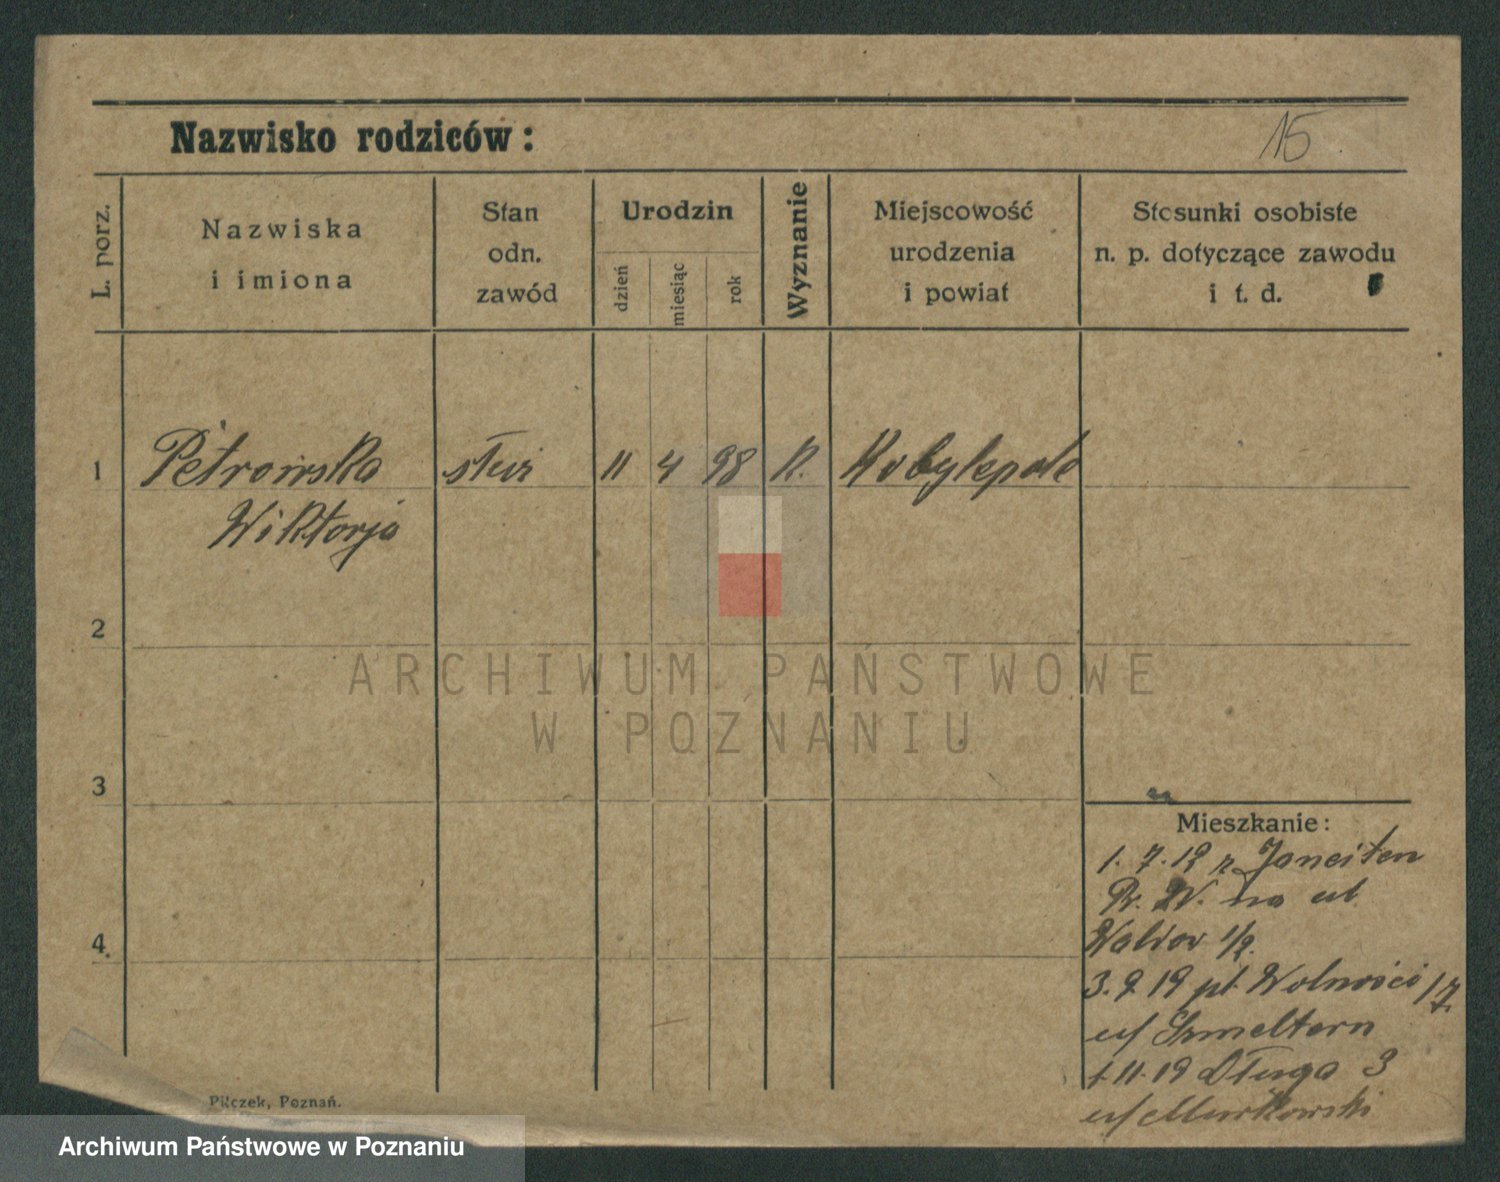 Nazwisko rodziców:
15
L. porz.
Nazwiska
i imiona
Stan
odn.
zawód
Urodzin
dzień
miesiąc
rok
Wyznanie
Miejscowość
urodzenia
i powiat
Stosunki osobiste
n. p. dotyczące zawodu
i t. d.
1 Petrowska służ 11 4 98 K. Kobylepole
Wiktorja
2
ARCHIWUM PAŃSTWOWE
W POZNANIU
3
Mieszkanie:
1. 7. 19 z
na ul.
4.
1/2.
3. 9. 19 pl. Wolności 17
1. 11. 19 Długa 3
Pilczek, Poznań.
Archiwum Państwowe w Poznaniu